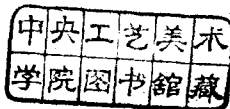 中央工艺美术
学院图书馆藏